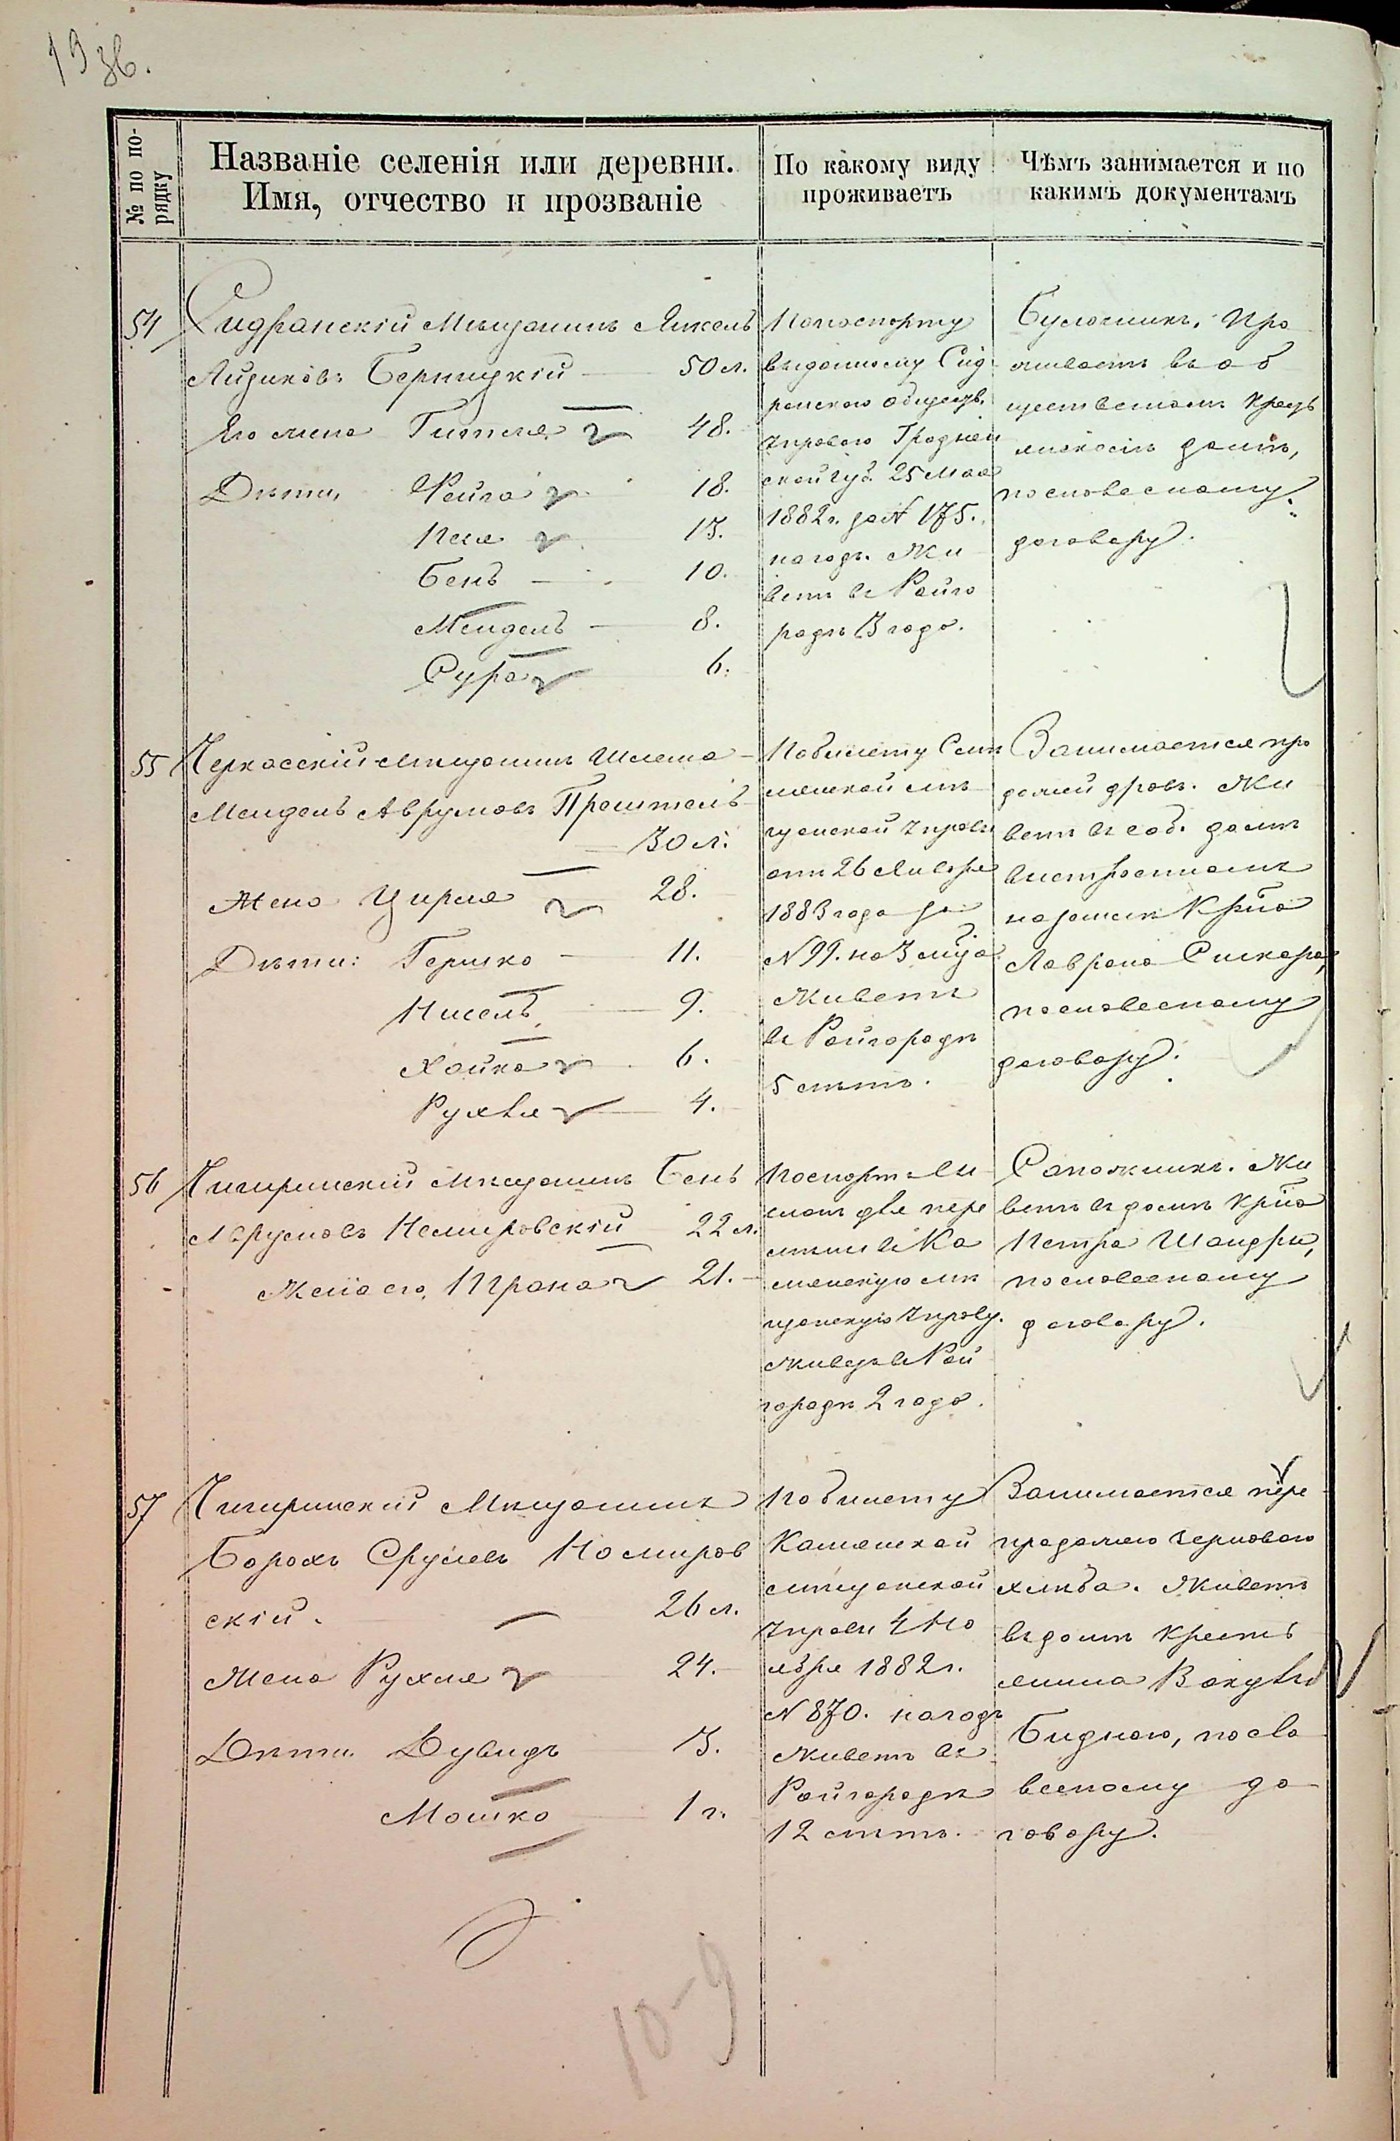 19 зв.
№ по по-
рядку
Названіе селенія или деревни.
Имя, отчество и прозваніе
По какому виду
проживаетъ
Чѣмъ занимается и по
какимъ документамъ
54
Сидранскій Мѣщанинъ Янкель
Айзиковъ Берницкій 50 л.
Его жена Гитля 48.
Дѣти, Фейга 18.
Песя 13.
Бенъ 10.
Мендель 8.
Сура 6.
По паспорту
выданному Сид
ранскою обществ.
управою Гроднен
ской губ. 25 Мая
1882 г. за № 175.
на годъ. Жи
ветъ въ Райго
родѣ 3 года.
Булочникъ. Про
живаетъ въ об
щественномъ кресть
янскомъ домѣ,
по словесному
договору.
55
Черкасскій мѣщанинъ Шлема
Мендель Аврумовъ
30 л.
Жена Цирля 28.
Дѣти: Гершко 11.
Нисель 9.
Хайка 6.
Рухля 4.
По билету Смѣ
лянской мѣ
щанской управы
отъ 26 Января
1883 года за
№ 99. на 3 мѣс.
Живетъ
въ Райгородѣ
5 лѣтъ.
Занимается про
дажей дровъ. Жи
ветъ въ соб. домѣ
выстроенномъ
на землѣ Кр-на
Лавра
по словесному
договору.
56
Чигиринскій мѣщанинъ Бенъ
Сруловъ Немировскій 22 л.
Жена его, 21.
Паспортъ вы
сланъ для пере
мѣны въ Ка
менскую мѣ
щанскую управу.
Живетъ въ Рай
городѣ 2 года.
Сапожникъ. Жи
ветъ въ домѣ кр-на
Петра Шандры,
по словесному
договору.
57
Чигиринскій Мѣщанинъ
Борохъ Срулевъ Немиров
скій. 26 л.
Жена Рухля 24.
Дѣти. Дувидъ 3.
Мошко 1 г.
По билету
Каменской
мѣщанской
управы 4 Но
ября 1882 г.
№ 870. на годъ
Живетъ въ
Райгородѣ
12 лѣтъ.
Занимается пере
продажею зерноваго
хлѣба. Живетъ
въ домѣ кресть
янина
Биднаго, по сло
весному до
говору.
10-9